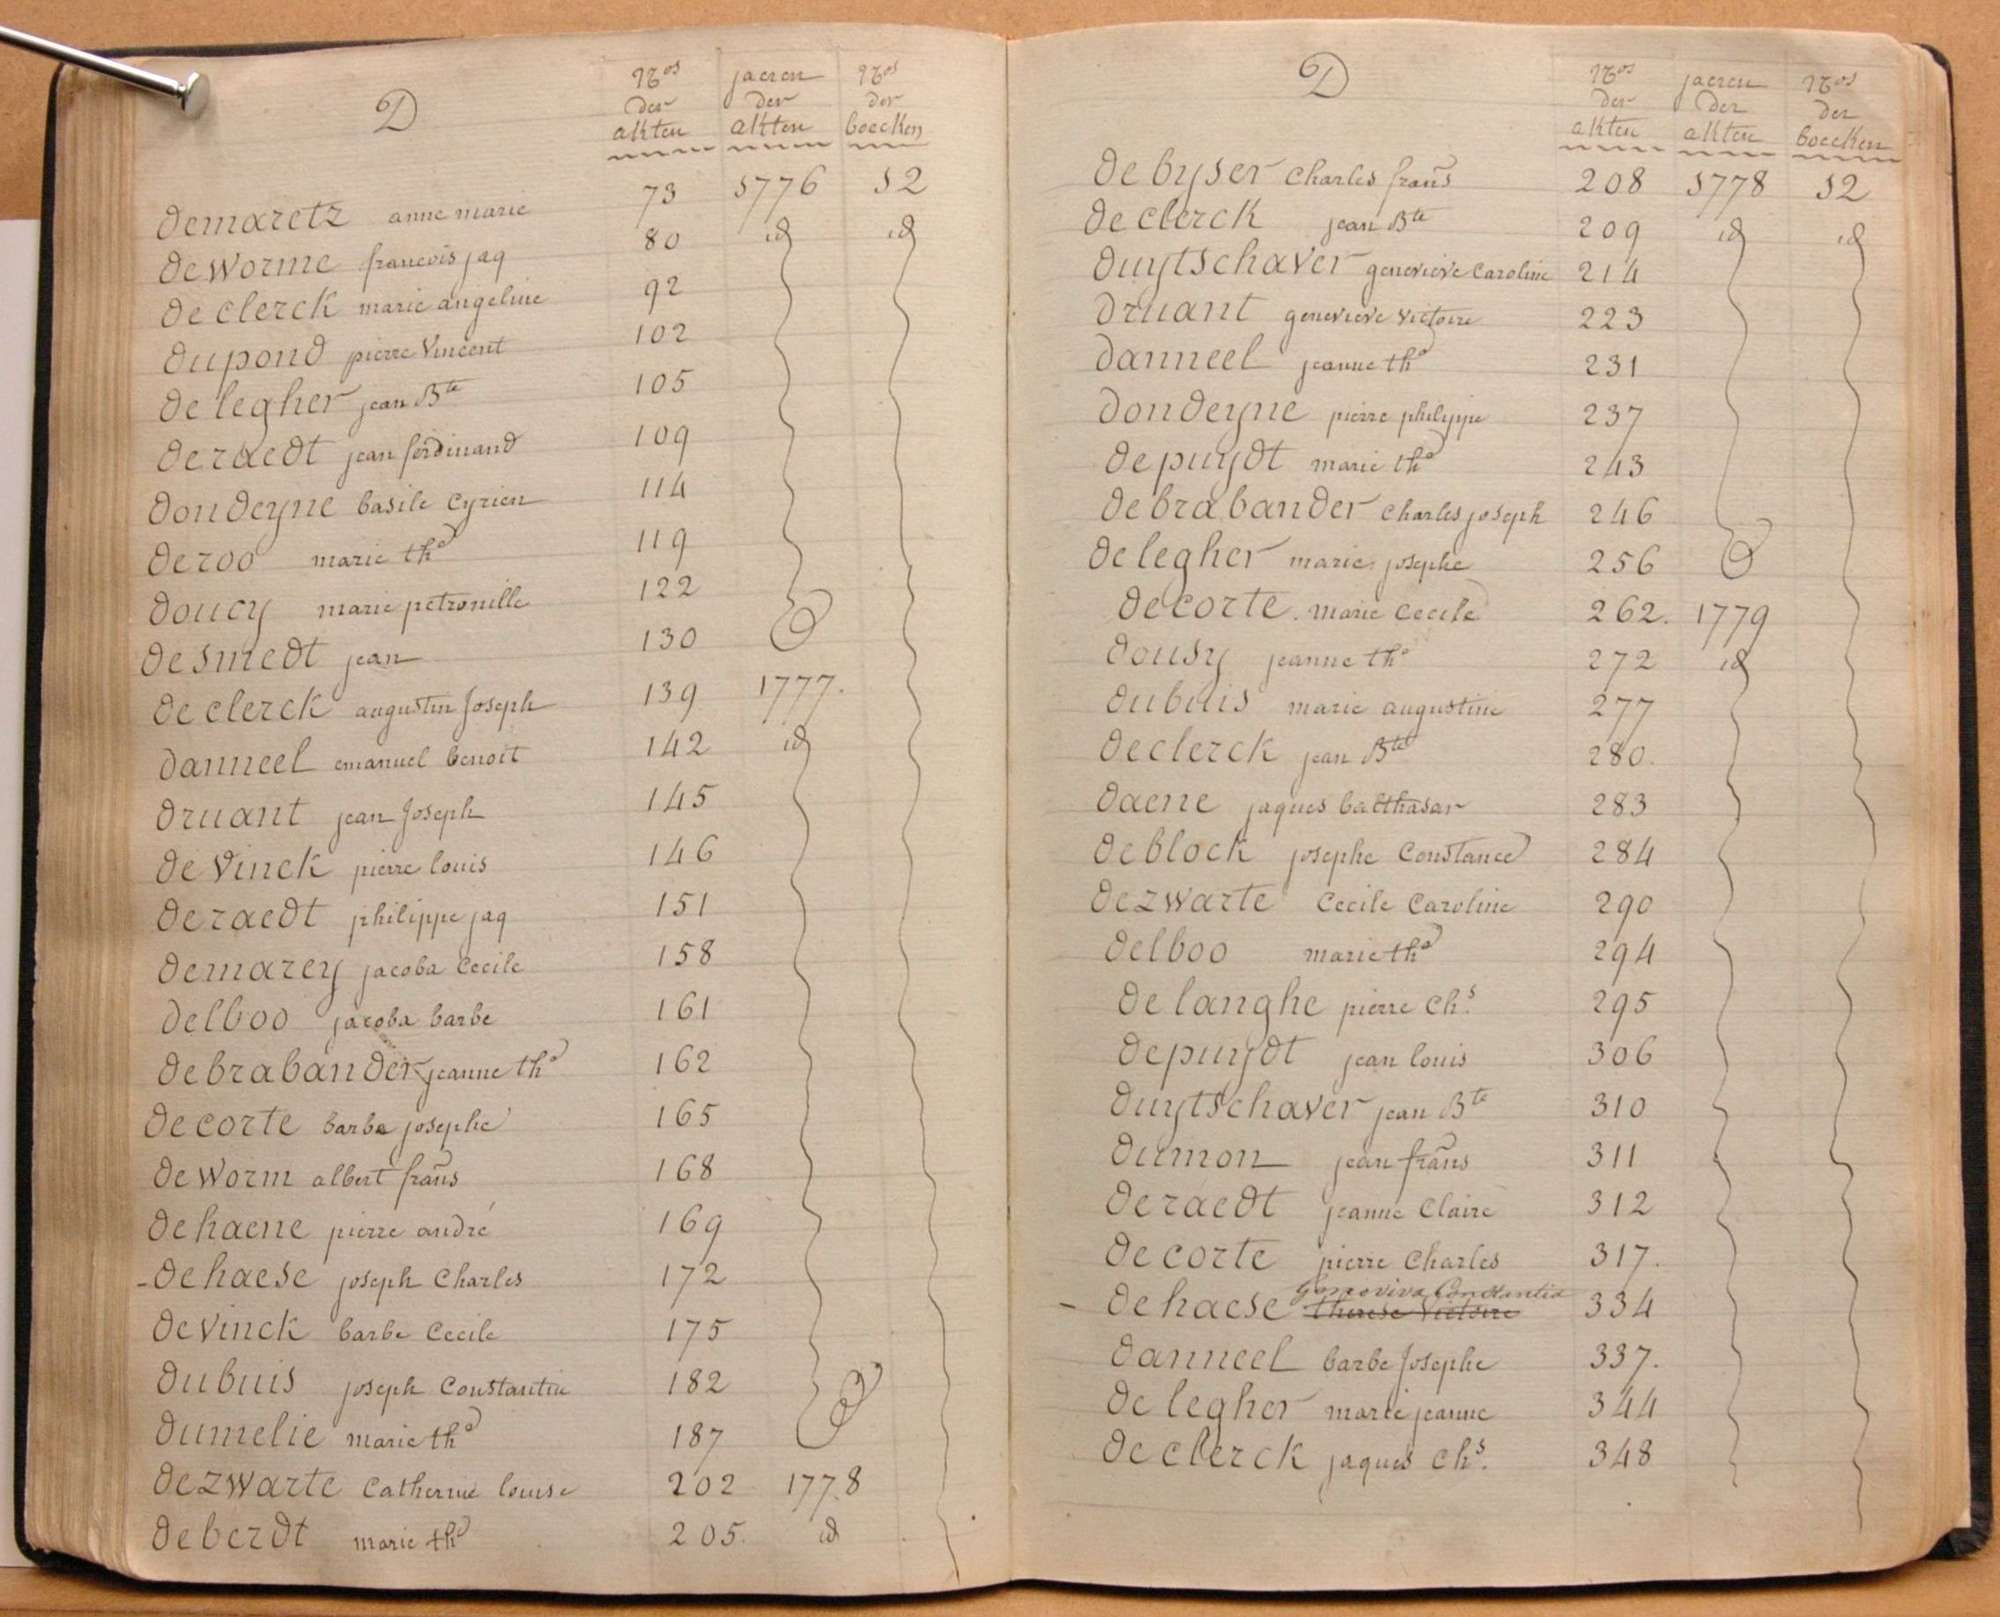 D
Nos der akten
jaeren der akten
Nos der boecken
demaretz anne marie 73 1776 12
deworme francois jaq 80 id id
declerck marie angeline 92
dupond pierre Vincent 102
delegher jean Bte 105
deraedt jean ferdinand 109
dondeyne basile Cyrien 114
deroo marie tha 119
doucy marie petronille 122
desmedt jean 130
declerck augustin Joseph 139 1777.
danneel emanuel benoit 142 id
druant jean Joseph 145
devinck pierre louis 146
deraedt philippe jaq 151
demarey jacoba Cecile 158
delboo jacoba barbe 161
debrabander jeanne tha 162
decorte barbe josephe 165
deworm albert frans 168
dehaene pierre andré 169
- dehaese joseph Charles 172
devinck barbe Cecile 175
dubuis joseph Constantin 182
dumelie marie tha 187
dezwarte Catherine louise 202 1778
deberdt marie tha 205. id
D
Nos der akten
jaeren der akten
Nos der boecken
debyser Charles frans 208 1778 12
declerck jean Bte 209 id id
duytschaver genevieve Caroline 214
druant genevieve Victoire 223
danneel jeanne tha 231
dondeyne pierre philippe 237
depuydt marie tha 243
debrabander Charles joseph 246
delegher marie josephe 256
decorte. marie Cecile 262. 1779
dousy jeanne tha 272 id
dubuis marie augustine 277
declerck jean Bte 280.
daene jaques balthasar 283
deblock josephe Constance 284
dezwarte Cecile Caroline 290
delboo marie tha 294
delanghe pierre Chs. 295
depuydt jean louis 306
duytschaver jean Bte 310
dumon jean frans 311
deraedt jeanne Claire 312
decorte pierre Charles 317.
Genoviva Constantia
- dehaese therese Victoire 334
danneel barbe Josephe 337.
delegher marie jeanne 344
declerck jaques Chs. 348